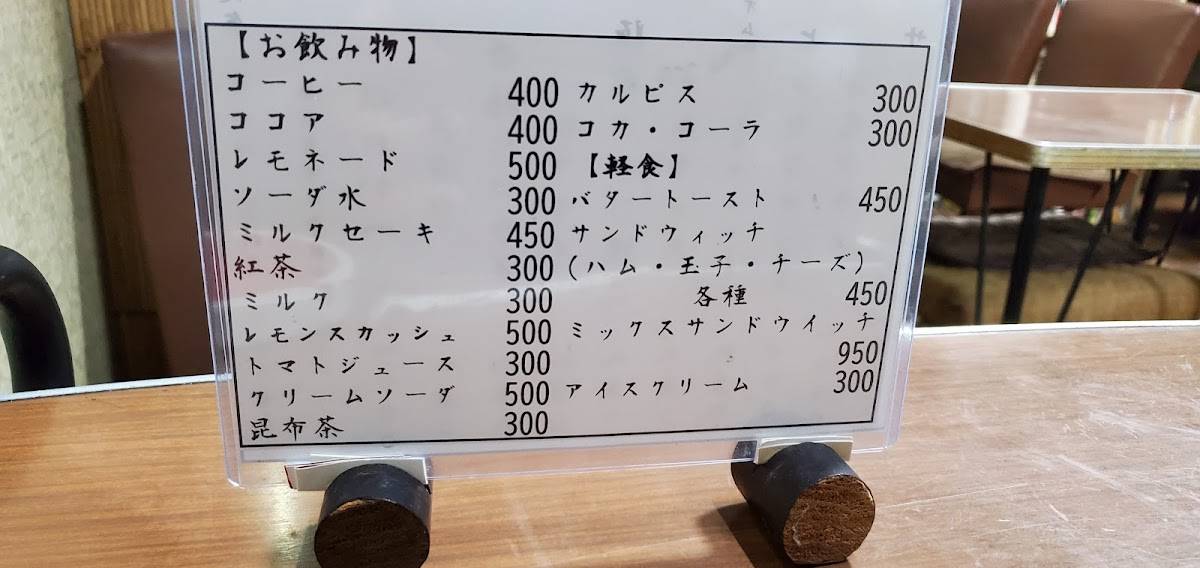 【お飲み物】
コーヒー 400
ココア 400
レモネード 500
ソーダ水 300
ミルクセーキ 450
紅茶 300
ミルク 300
レモンスカッシュ 500
トマトジュース 300
クリームソーダ 500
昆布茶 300
カルピス 300
コカ・コーラ 300
【軽食】
バタートースト 450
サンドウィッチ
(ハム・玉子・チーズ)
各種 450
ミックスサンドウイッチ
950
アイスクリーム 300